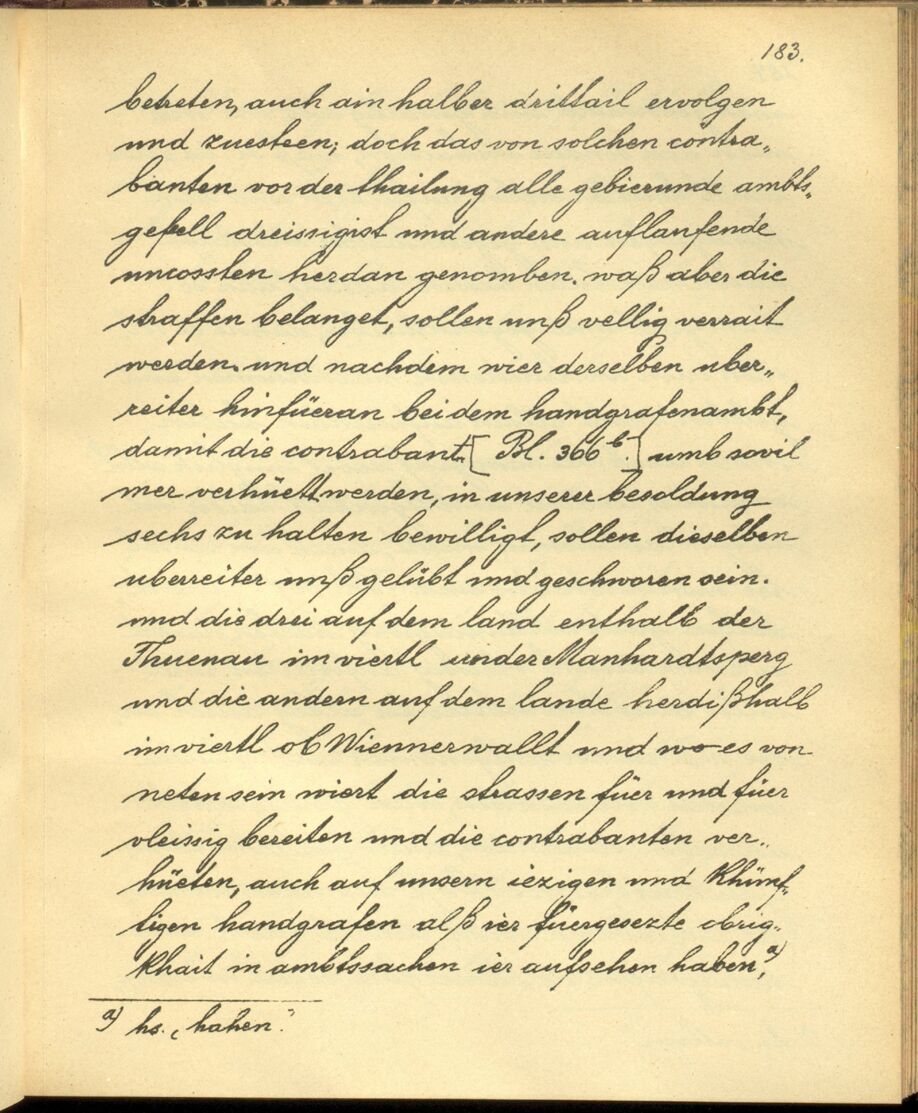 183.
betreten, auch ain halber drittail ervolgen
und zuesteen; doch das von solchen contra„
banten vor der thailung alle gebierunde ambts„
gefell dreissigist und andere auflaufende
uncossten herdan genomben. waß aber die
straffen belanget, sollen unß vellig verrait
werden. und nachdem wier derselben uber„
reiter hinfüeran bei dem handgrafenambt,
damit die contrabant. [Bl. 366 b.] umb sovil
mer verhüett werden, in unserer besoldung
sechs zu halten bewilligt, sollen dieselben
uberreiter unß gelübt und geschworen sein.
und die drei auf dem land enthalb der
Thuenau im viertl under Manhardtsperg
und die andern auf dem lande herdißhalb
im viertl ob Wiennerwallt und wo es von
neten sein wiert die strassen füer und füer
vleissig bereiten und die contrabanten ver„
hüeten, auch auf unsern iezigen und khünf„
tigen handgrafen alß ier füergesezte obrig„
khait in ambtssachen ier aufsehen haben, a)
a) hs. „hahen“.